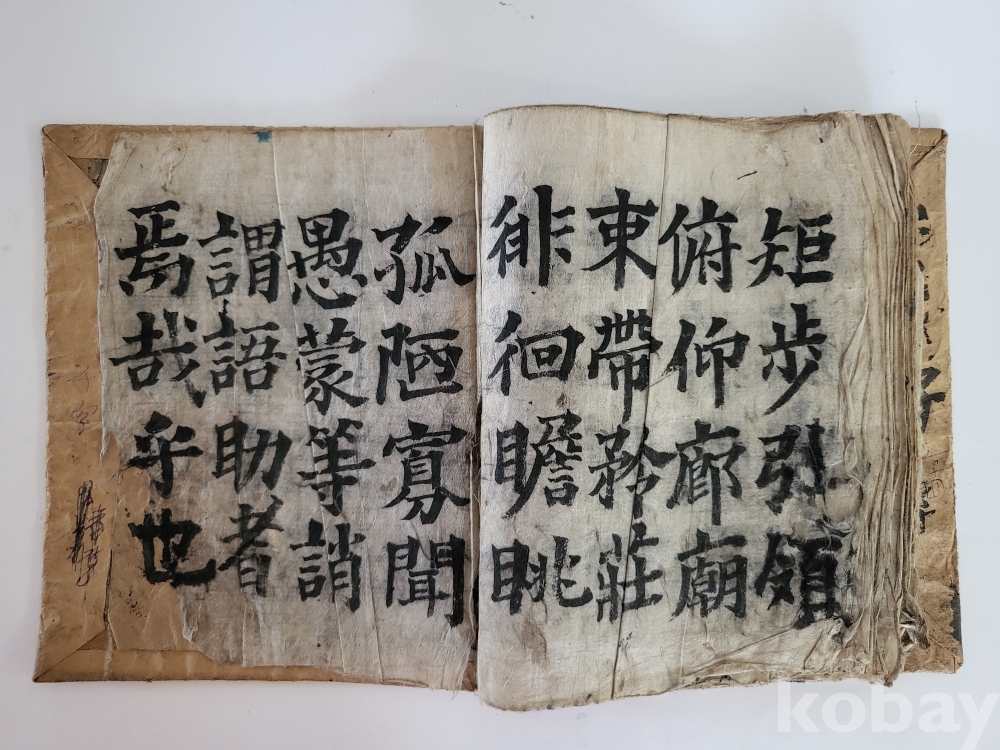 矩步引領
俯仰廊廟
束帶矜莊
徘徊瞻眺
孤陋寡聞
愚蒙等誚
謂語助者
焉哉乎也
kobay